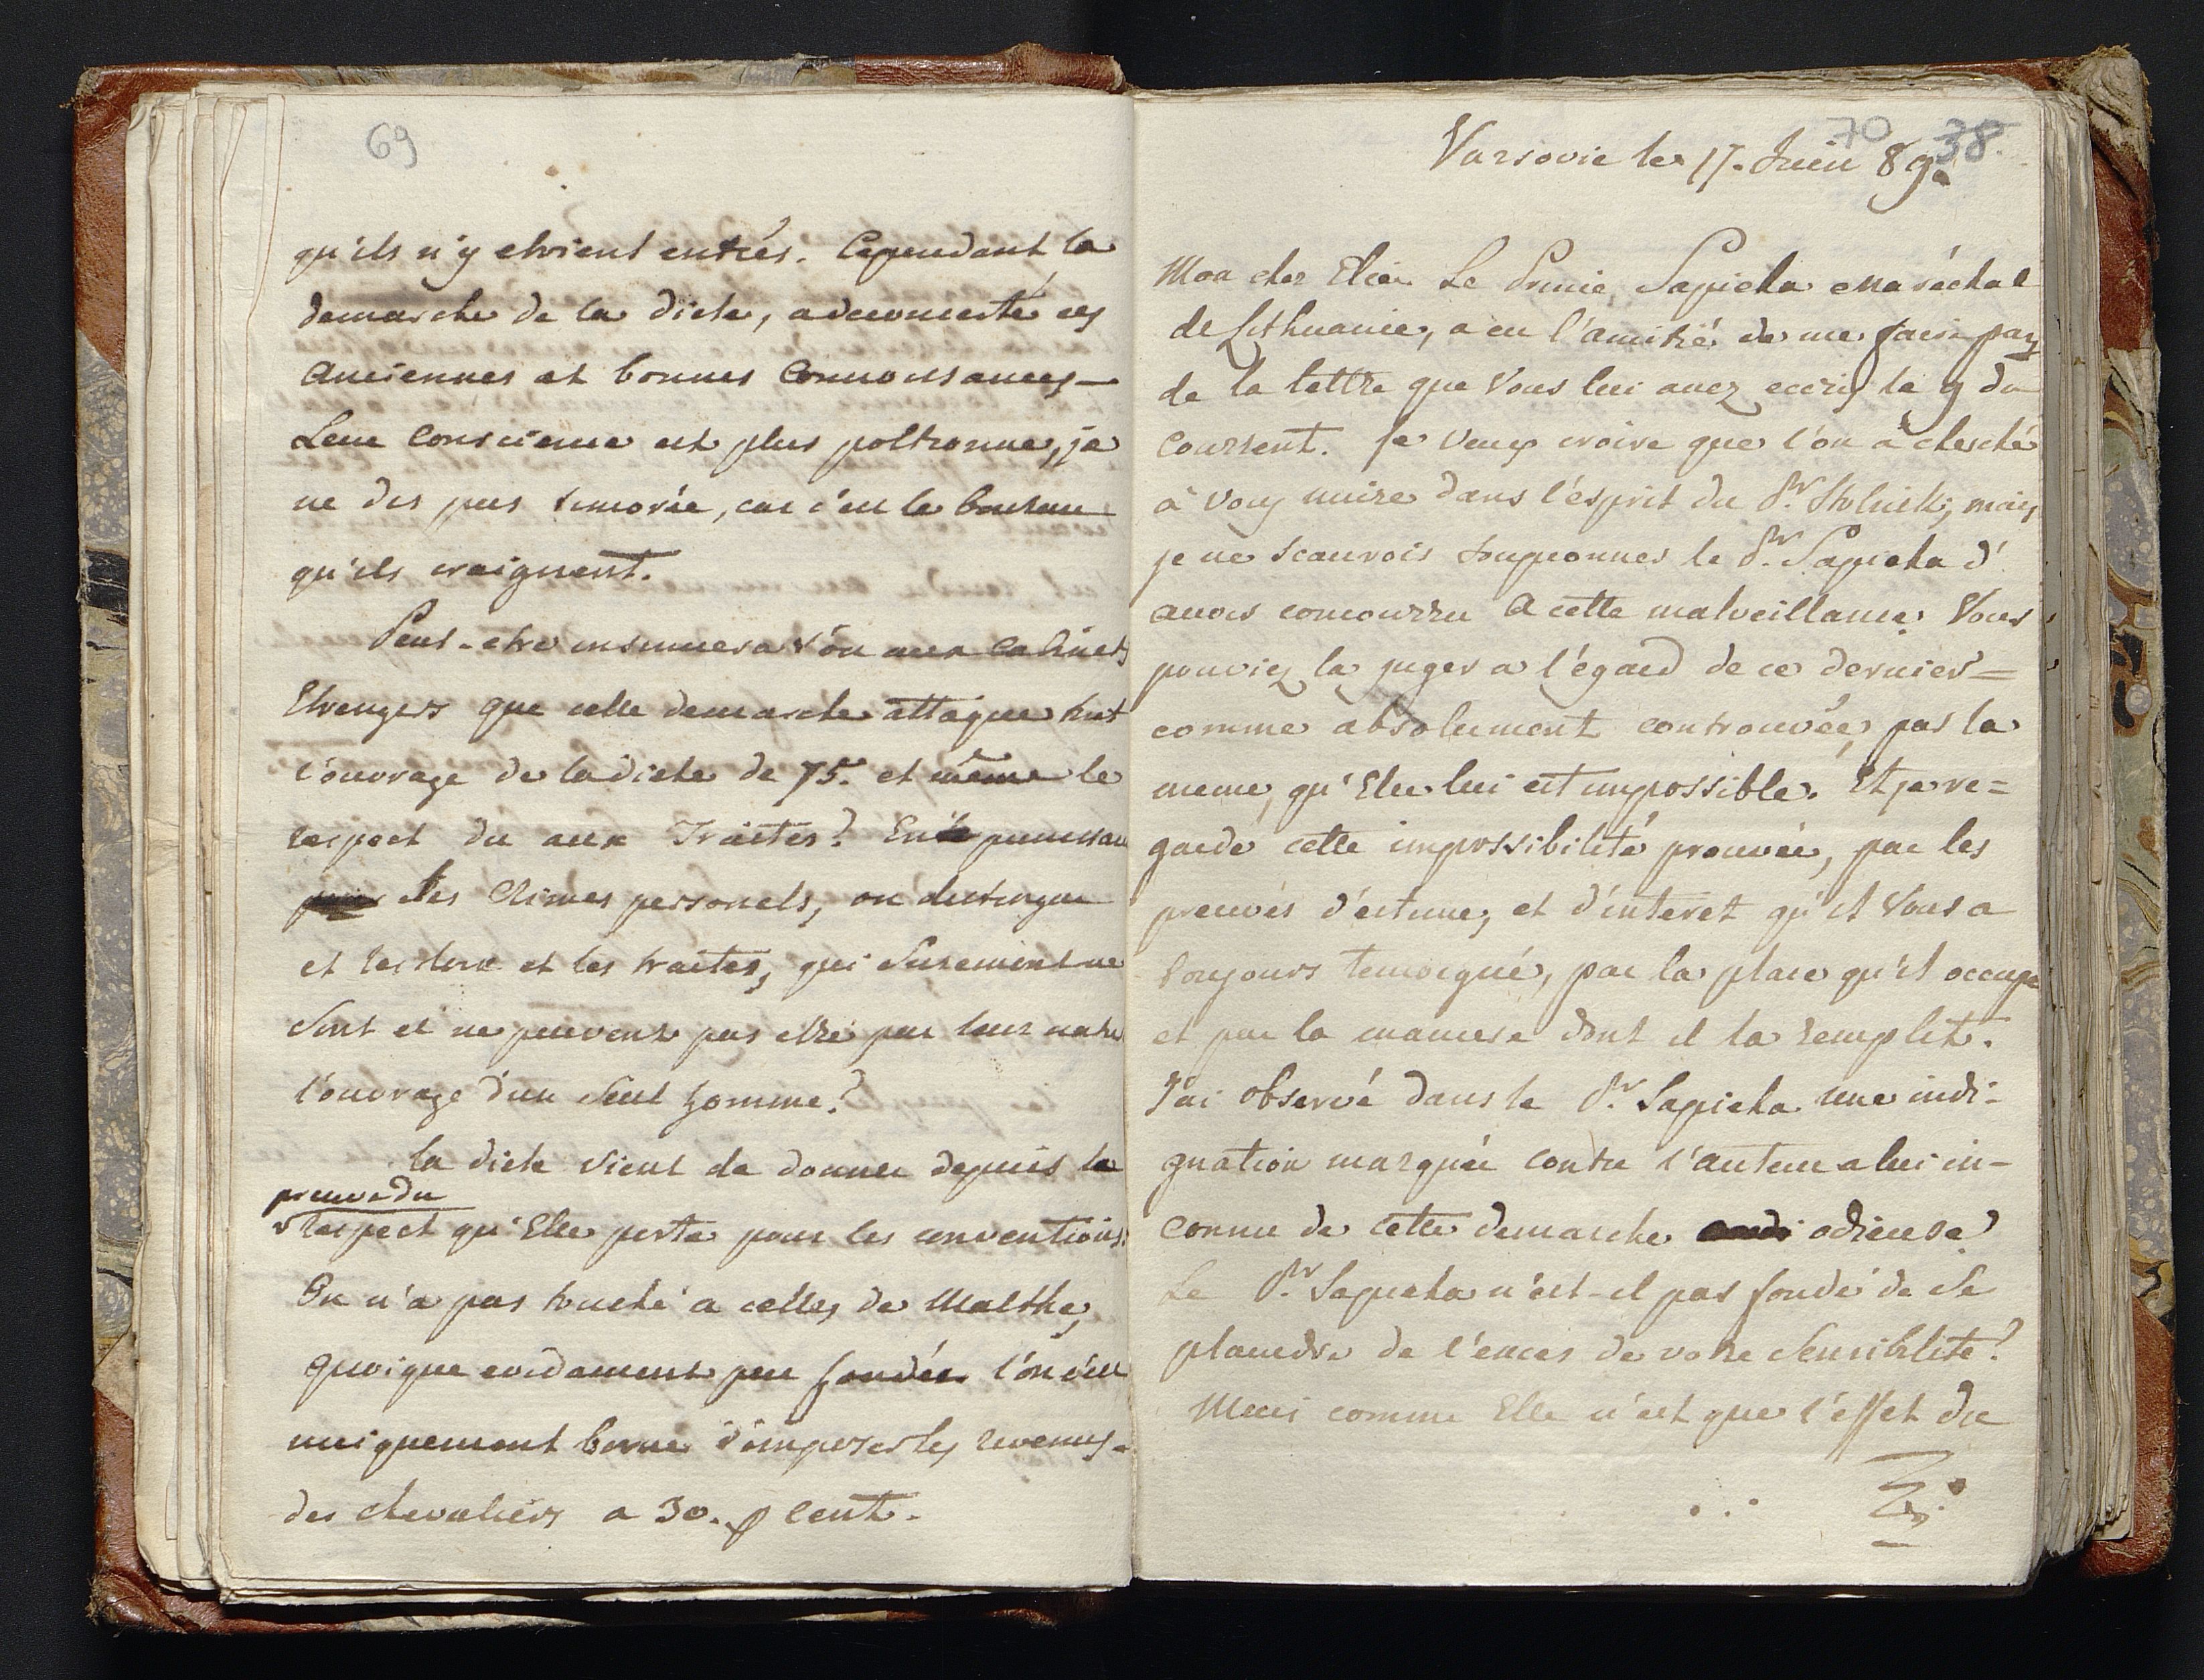 69
qu'ils n'y etoient entrés. Cependant la
demarche de la diete, a deconcerté ces
anciennes et bonnes Connoissances—
Leur Conscience est plus poltronne, je
ne dis pas timorée, car c'est le
qu'ils craignent.
Peut-etre insinuera t'on aux Cabinets
Etrengers que cette demarche attaque tout
l'ouvrage de la diete de 75. et même le
respect du aux Traités? En punissant
les Crimes personels, on distingue
et les loix et les traités, qui surement ne
sont et ne peuvent pas etre par leur nature
l'ouvrage d'un seul homme?
la diete vient de donner depuis la
preuve du
respect qu'Elle porte pour les conventions.
On n'a pas touché a celles de Malthe,
quoique evidament peu fondée l'on s'est
uniquement borné d'imposer les revenus
des chevaliers a 30. p cent.
70 38
Varsovie le 17. Juin 89.
Mon cher Elie. Le Prince Sapieha Maréchal
de Lithuanie, a eu l'amitié de me faire part
de la lettre que Vous lui avez ecris le 9 du
Courrent. Je veux croire que l'on a cherché
à vous nuire dans l'esprit du Pr. Stolnik, mais
je ne scaurois soupconner le Pr. Sapieha d'
avoir concourru a cette malveillance. Vous
pouviez la juger a l'égard de ce dernier=
comme absolument controuvée, par la
meme, qu'Elle lui est impossible. Et je re=
garde cette impossibilité prouvée, par les
preuves d'estime, et d'interet qu'il Vous a
toujours temoigné, par la place qu'il occupe
et par la maniere dont il la remplit.
J'ai observé dans le Pr. Sapieha une indi-
gnation marquée contre l'auteur a lui in-
connu de cette demarche odieuse
Le Pr. Sapieha n'est-il pas fondé de se
plaindre de l'exces de votre Sensiblité?
Mais comme Elle n'est que l'effet du